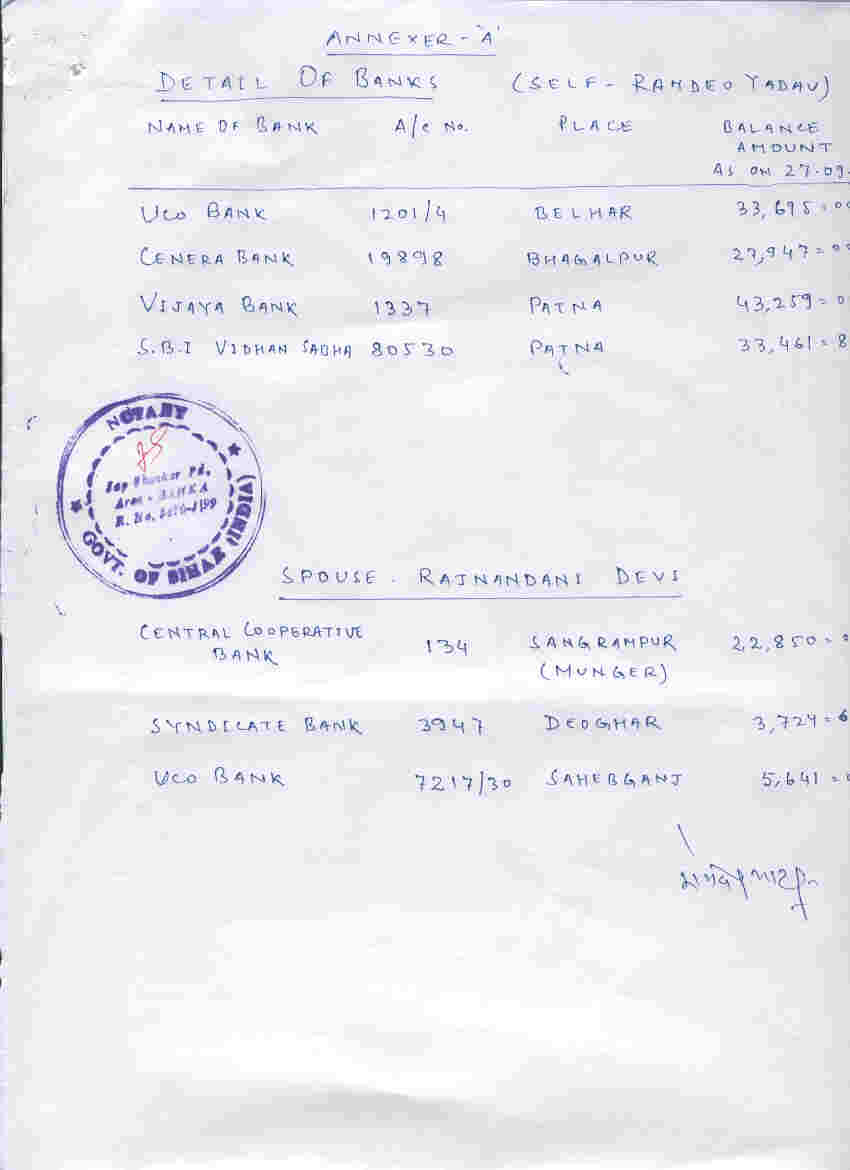 ANNEXER - "A"
DETAIL OF BANKS (SELF - RAMDEO YADAV)
NAME OF BANK A/c No. PLACE BALANCE
AMOUNT
AS ON 27.09.
UCO BANK 1201/4 BELHAR 33,695=00
CENERA BANK 19898 BHAGALPUR 27,947=0
VIJAYA BANK 1337 PATNA 43,259=0
S.B.I VIDHAN SABHA 80530 PATNA 33,461=8
NOTARY
Jay Shankar Pd.
Area - BANKA
GOVT. OF BIHAR (INDIA)
SPOUSE - RAJNANDANI DEVI
CENTRAL COOPERATIVE 134 SANGRAMPUR 22,850=
BANK (MUNGER)
SYNDICATE BANK 3947 DEOGHAR 3,724=6
UCO BANK 7217/30 SAHEBGANJ 5,641=0